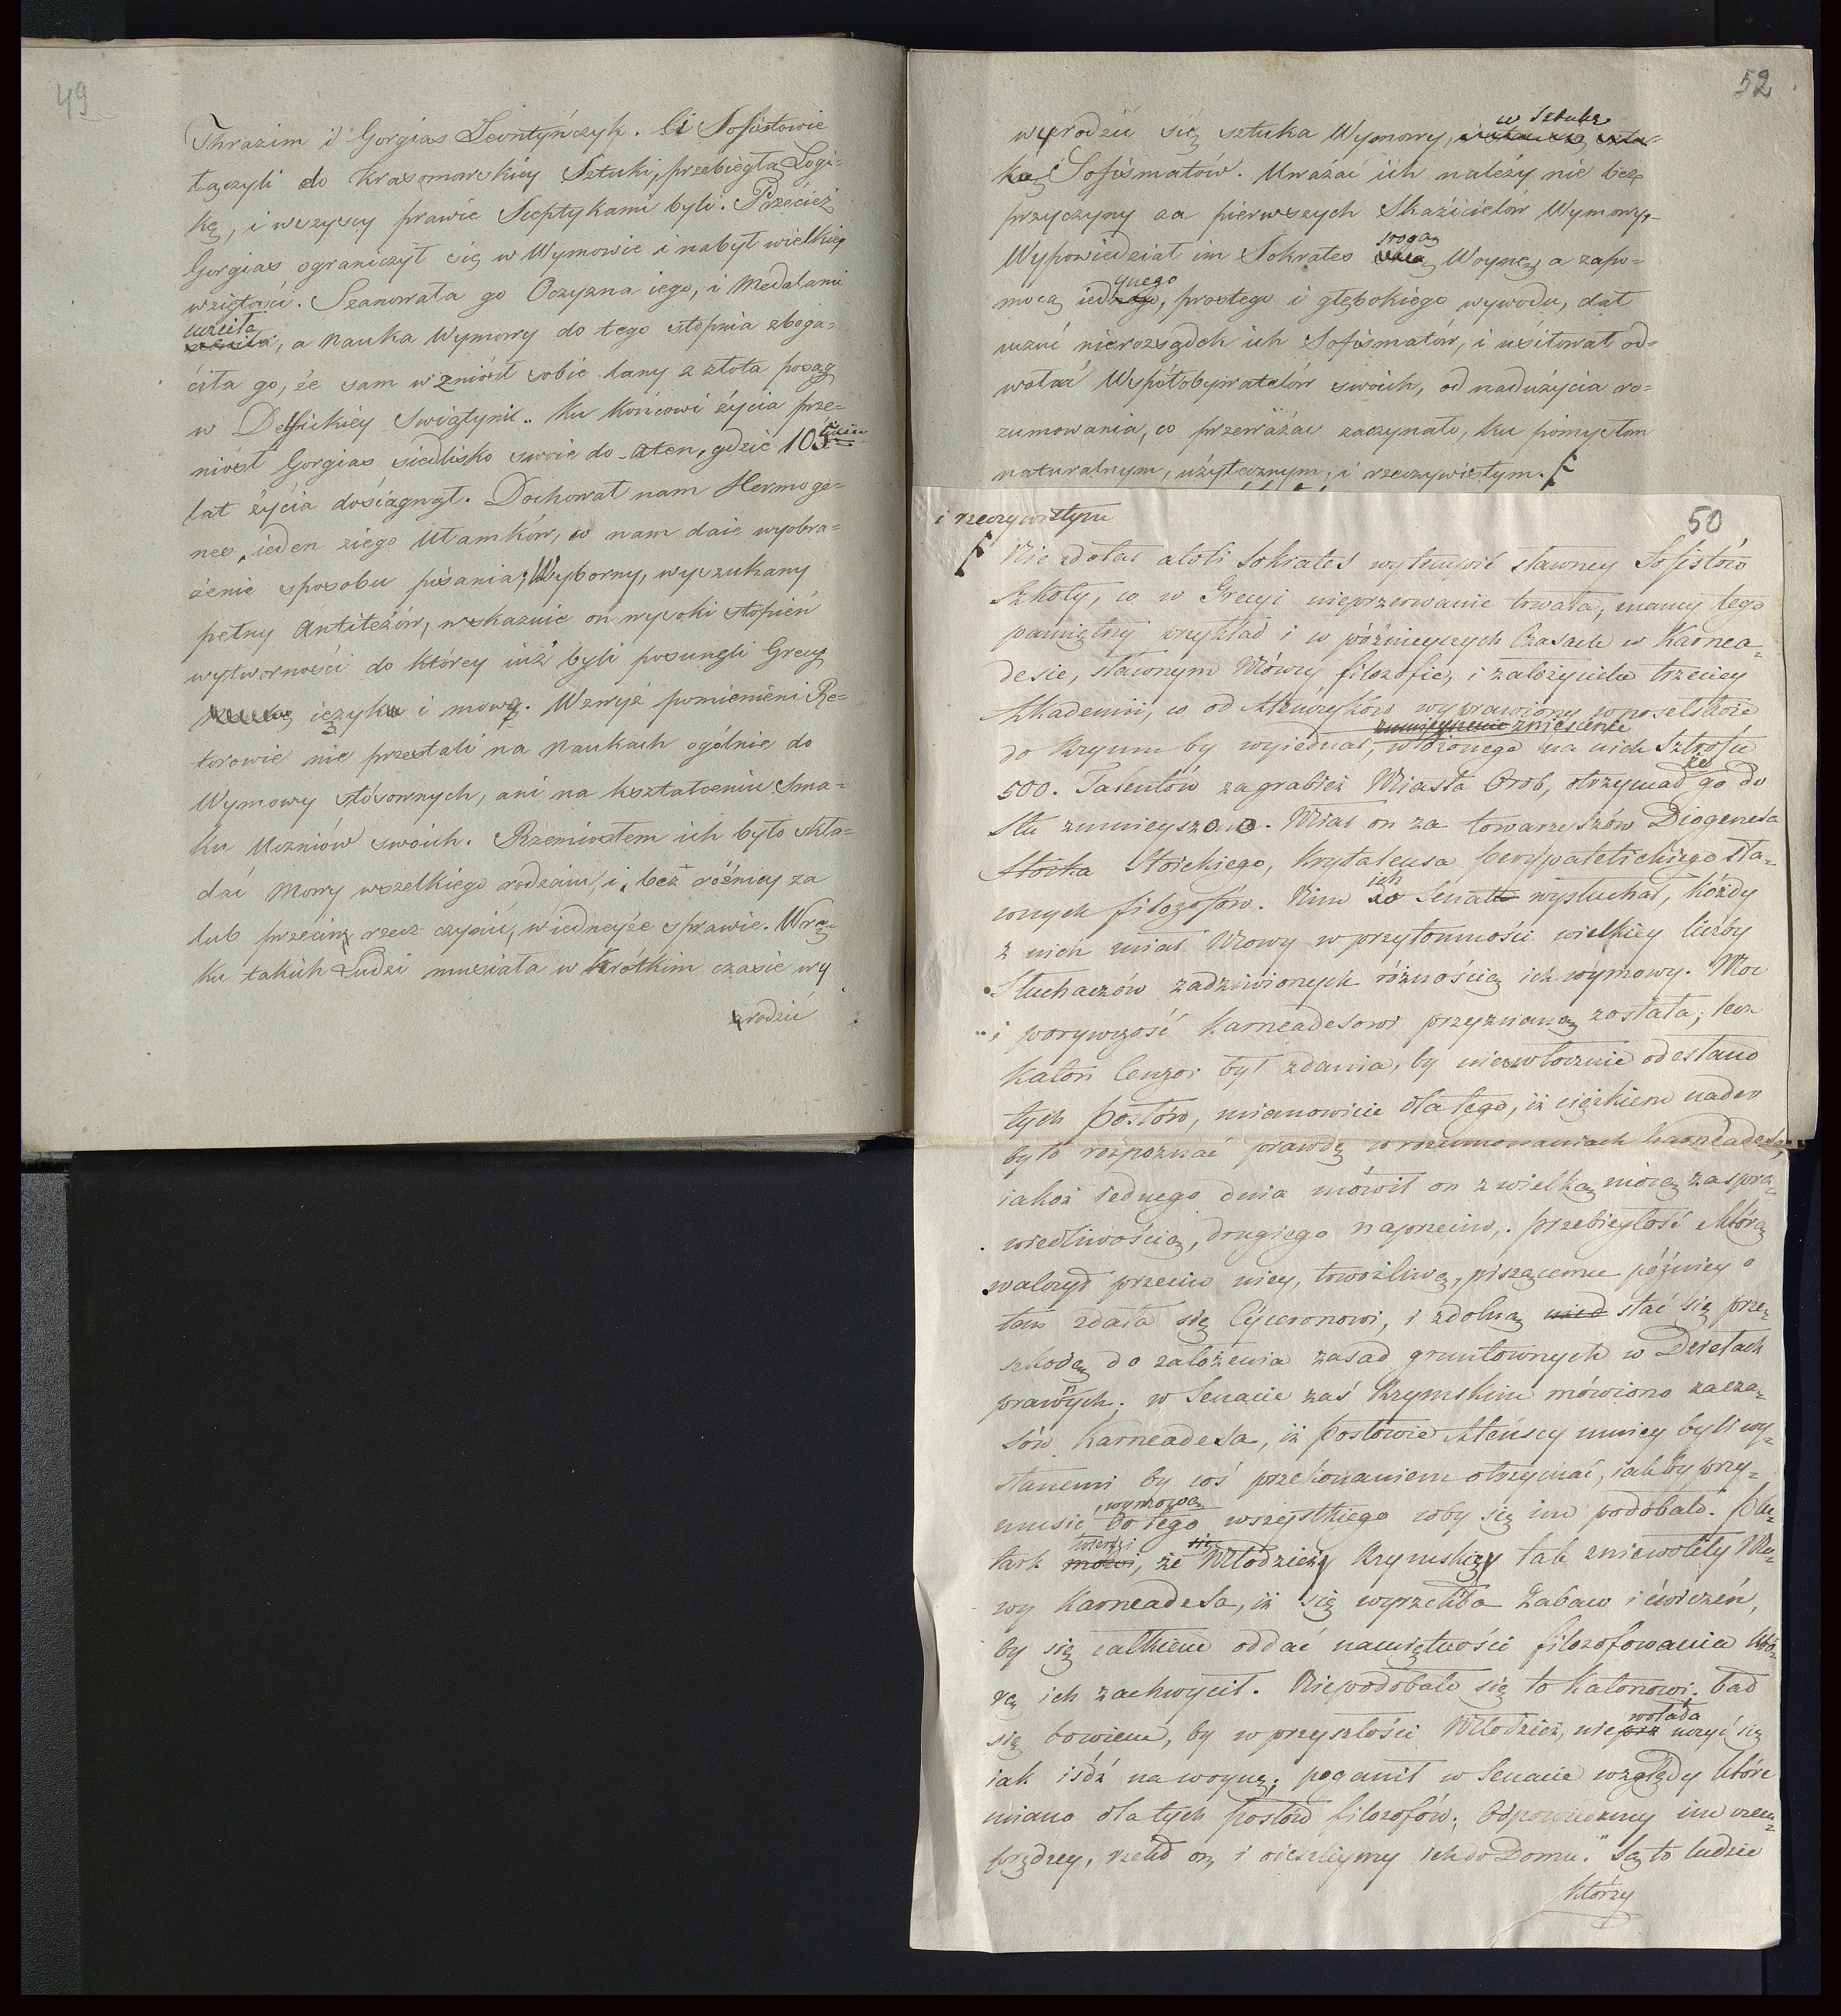 49
Thrazim i Gorgias Leontyńczyk. Ci Sofistowie
łączyli do Krasomowskiey Sztuki, przebiegłą Logi-
kę, i wszyscy prawie Sceptykami byli. Przecież
Gorgias ograniczył się w Wymowie i nabył wielkiey
wziętości. Szanowała go Oczyzna iego, i Medalami
uczciła
, a Nauka Wymowy do tego stopnia zboga-
ciła go, że sam wzniósł sobie lany z złota posąg
w Delfickiey Swiątyni.. Ku Końcowi życia prze-
niósł Gorgias siedlisko swoie do Aten, gdzie 105
lat życia dościągnął. Dochował nam Hermoge-
nes, ieden ziego Ułamków, co nam daie wyobra-
żenie sposobu pisania; Wyborny, wyszukany
pełny Antiteżów, wskazuie on wysoki stopień
wytworności do którey iuż byli posunęli Grecy
ięzyk i mowę. Wzwyż pomienieni Re-
torowie nie przestali na Naukach ogólnie do
Wymowy stósownych, ani na kształceniu Sma-
ku Uczniów swoich. Rzemiosłem ich było skła-
dać Mowy wszelkiego rodzaiu, i bez różnicy za
lub przeciw rzecz czynić, w iedneyże sprawie. W rę-
ku takich Ludzi musiała w krótkim czasie wy
rodzić
52
wyrodzić się sztuka Wymowy,
w Sztukę
Sofismatów. Uważać ich należy nie bez
przyczyny za pierwszych Skazicielów Wymowy,
srogą
Wypowiedział im Sokrates Woynę, a zapo-
ynego
mocą ied, prostego i głębokiego wywodu, dał
uczuć nierozsądek ich Sofismatów, i usiłował od-
wołać Współobywatelów swoich, od nadużycia ro-
zumowania, co przeważać zaczynało, ku pomysłom
naturalnym, użytecznym, i rzeczywistym.
i rzeczywistym
50
Nie zdołał atoli Sokrates wytempić sławney Sofistów
Szkoły, co w Grecyi nieprzerwanie trwała, mamy tego
pamiętny przykład i w późnieyszych Czasach w Karnea-
desie, sławnym Mówcy filozofie, i założycielu trzeciey
Akademii, co od Ateńczyków wyprawiony w poselstwie
zmnieyszenie zniesienie
do Rzymu by wyiednał, włożonego na nich Sztrofu
że
500. Talentów zagrabież Miasta Orob, otrzymał go do
Stu zmnieyszono. Miał on za towarzyszów Diogenesa
Stoika Stoickiego, Krytaleusa perypatetickiego sła-
ich
wnych filozofów. Nim Senat wysłuchał, każdy
z nich miał Mowy w przytomności wielkiey liczby
Słuchaczów zadziwionych różnością ich wymowy. Moc
i porywczość Karneadesowi przyznaną została; lecz
Katon Cenzor był zdania, by niezwłocznie odesłano
tych posłów, mianowicie dla tego, iż ciężkiem nader
było rozpoznać prawdę w rozumowaniach Karneadesa,
iakoż iednego dnia mówił on z wielką mócą za spra-
wiedliwością, drugiego naprzeciw. przebiegłość którą
walczył przeciw niey, trwożliwą, piszącemu późniey o
tem zdała się Cyceronowi, i zdolną stać się prze-
szkodą do założenia zasad gruntownych w Dziełach
prawnych; w Senacie zaś Rzymskim mówiono za cza-
sów Karneadesa, iż posłowie Ateńscy mniey byli wy-
słanemi by coś przekonaniem otrzymać, iak by przy-
wymową
musić do tego wszystkiego coby się im podobało. Plu-
twierdzi
tark mówi, że Młodzież Rzymską tak zniewoliły Mo-
wy Karneadesa, iż się wyrzekła Zabaw i ćwiczeń,
by się całkiem oddać namiętności filozofowania któ-
rą ich zachwycił. Niepodobało się to Katonowi. bał
wolała
się bowiem, by w przyszłości Młodzież, nie uczyć się
iak iśdź na woynę; poganił w Senacie względy które
miano dla tych posłów filozofów; Odpowiedzmy im czem-
prędzey, rzekł on, i odeszliymy ich do Domu. Są to ludzie
którzy